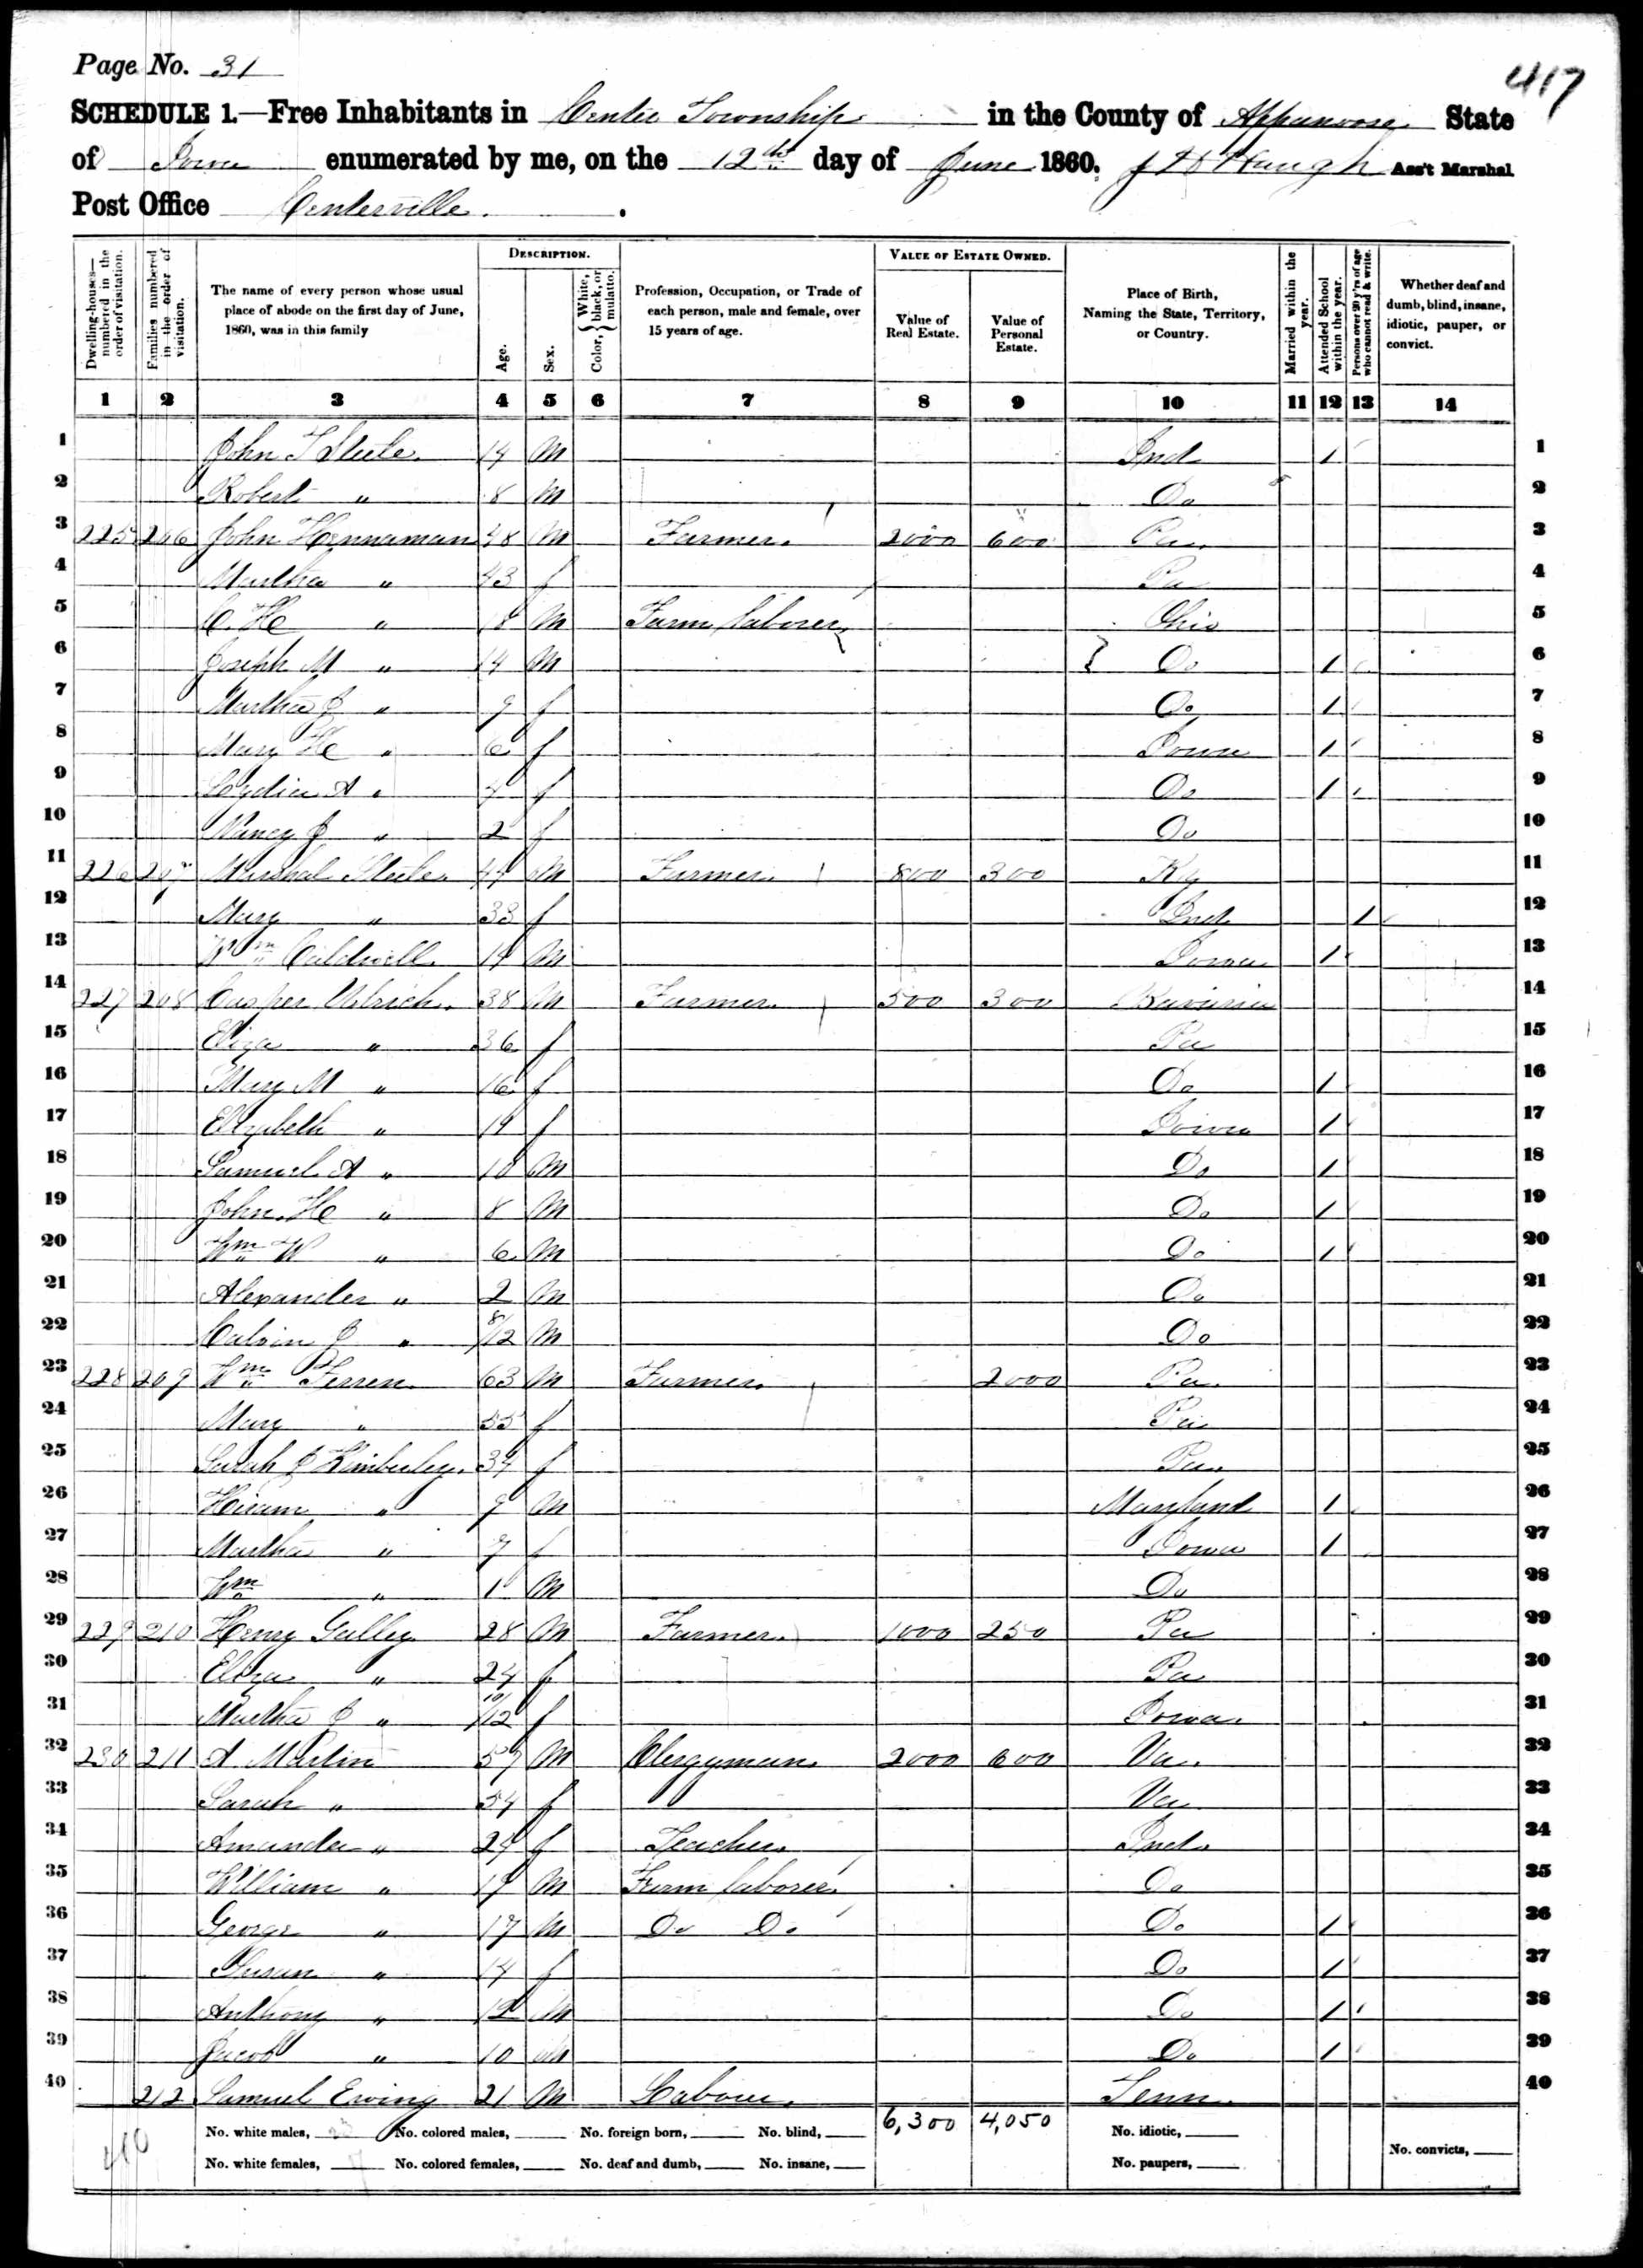 Page No. 31
417
SCHEDULE 1.—Free Inhabitants in Center Township in the County of Appanoose State
of Iowa enumerated by me, on the 12th day of June 1860. Ass't Marshal
Post Office Centerville.
DESCRIPTION. VALUE OF ESTATE OWNED.
Dwelling-houses—numbered in the order of visitation. Families numbered in the order of visitation. The name of every person whose usual place of abode on the first day of June, 1860, was in this family Age. Sex. Color, { White, black, or mulatto. Profession, Occupation, or Trade of each person, male and female, over 15 years of age. Value of Real Estate. Value of Personal Estate. Place of Birth, Naming the State, Territory, or Country. Married within the year. Attended School within the year. Persons over 20 y'rs of age who cannot read & write. Whether deaf and dumb, blind, insane, idiotic, pauper, or convict.
1 2 3 4 5 6 7 8 9 10 11 12 13 14
1 John T Steele 14 M Ind 1 1
2 Robert " 8 M Do 2
3 225 206 John Hennaman 48 M Farmer. 2000 600 Pa. 3
4 Martha " 43 f Pa 4
5 C. H " 18 M Farm laborer Ohio 5
6 Joseph M " 14 M Do 1 6
7 Martha J " 9 f Do 1 7
8 Mary H " 6 f Iowa 1 8
9 Lydia A " 4 f Do 1 9
10 Nancy J " 2 f Do 10
11 226 207 Marshal Steele. 44 M Farmer. 800 300 Ky 11
12 Mary " 33 f Ind. 1 12
13 Wm Caldwell. 14 M Iowa 1 13
14 227 208 Casper Ulrich. 38 M Farmer. 500 300 Bavaria 14
15 Eliza " 36 f Pa 15
16 Mary M " 16 f Do 1 16
17 Elizabeth " 14 f Iowa 1 17
18 Samuel A " 10 M Do 1 18
19 John H " 8 M Do 1 19
20 Wm W " 6 M Do 1 20
21 Alexander " 2 M Do 21
22 Calvin J " 8/12 M Do 22
23 228 209 Wm Ferren. 63 M Farmer. 2000 Pa. 23
24 Mary " 55 f Pa 24
25 Sarah J Kimberley. 34 f Pa. 25
26 Hiram " 9 M Maryland 1 26
27 Martha " 7 f Iowa 1 27
28 Wm " 1 M Do 28
29 229 210 Henry Gulley. 28 M Farmer. 1000 250 Pa 29
30 Eliza " 24 f Pa 30
31 Martha J " 10/12 f Iowa. 31
32 230 211 A. Martin 57 M Clergyman. 2000 600 Va. 32
33 Sarah " 54 f Va 33
34 Amanda " 24 f Teacher. Ind. 34
35 William " 19 M Farm laborer. Do 35
36 George " 17 M Do Do Do 1 36
37 Susan " 14 f Do 1 37
38 Anthony " 12 M Do 1 38
39 Jacob " 10 M Do 1 39
40 212 Samuel Ewing 21 M Labour. Tenn. 40
6,300 4,050
No. white males, No. colored males, No. foreign born, No. blind, No. idiotic,
No. white females, No. colored females, No. deaf and dumb, No. insane, No. paupers, No. convicts,